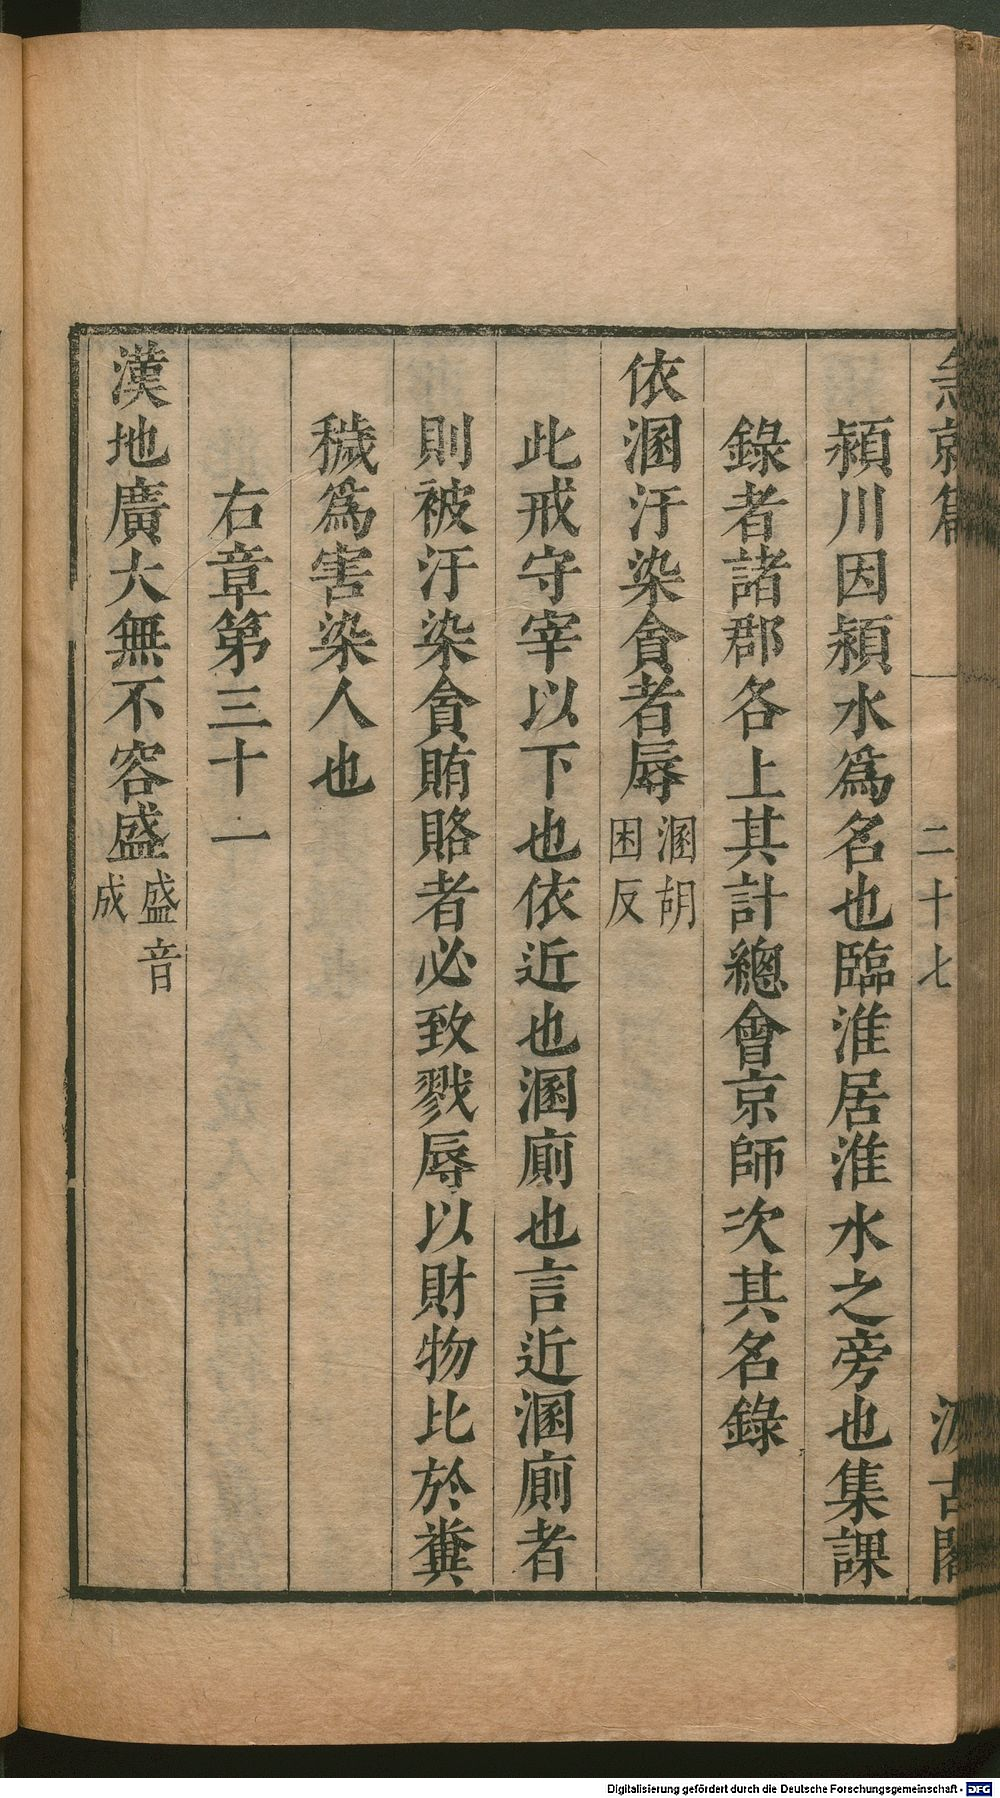 急就篇 二十七 汲古閣
潁川因潁水爲名也臨淮居淮水之旁也集課
錄者諸郡各上其計總會京師次其名錄
依溷汙染貪者辱溷胡困反
此戒守宰以下也依近也溷廁也言近溷廁者
則被汙染貪賄賂者必致戮辱以財物比於糞
穢爲害染人也
右章第三十一
漢地廣大無不容盛盛音成
Digitalisierung gefördert durch die Deutsche Forschungsgemeinschaft - DFG